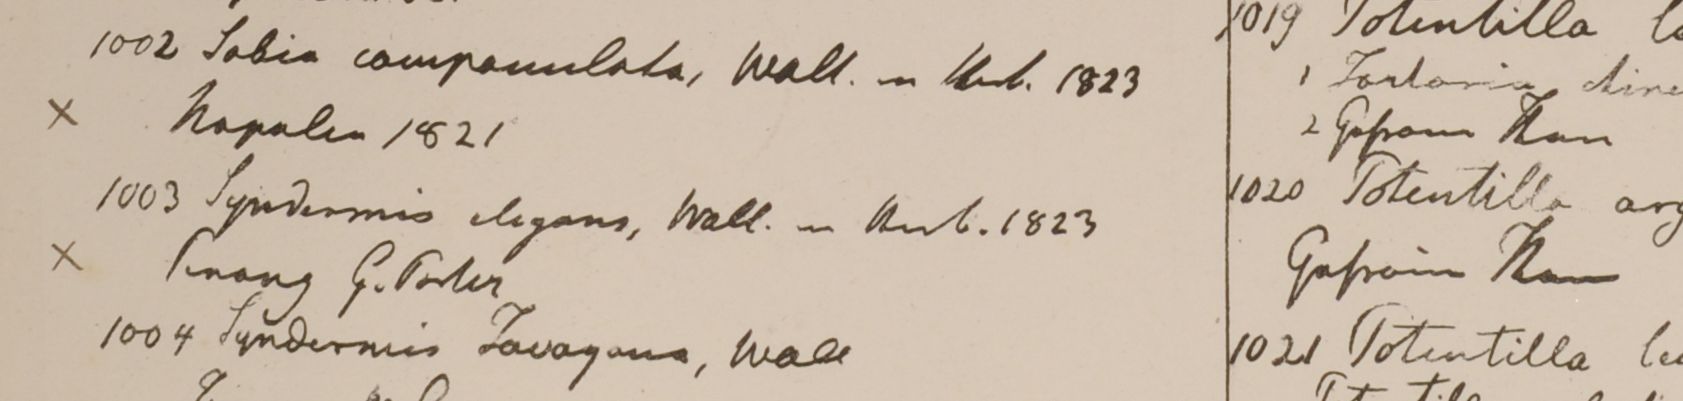 1002 Sabia campanulata, Wall. in Herb. 1823
× Napalia 1821
1003 Syndermis elegans, Wall. in Herb. 1823
× Penang G. Porter
1004 Syndermis Tavoyana, Wall
1019 Potentilla
1 Tartaria chine
2 Gossain Than
1020 Potentilla arg
Gossain Than
1021 Potentilla le